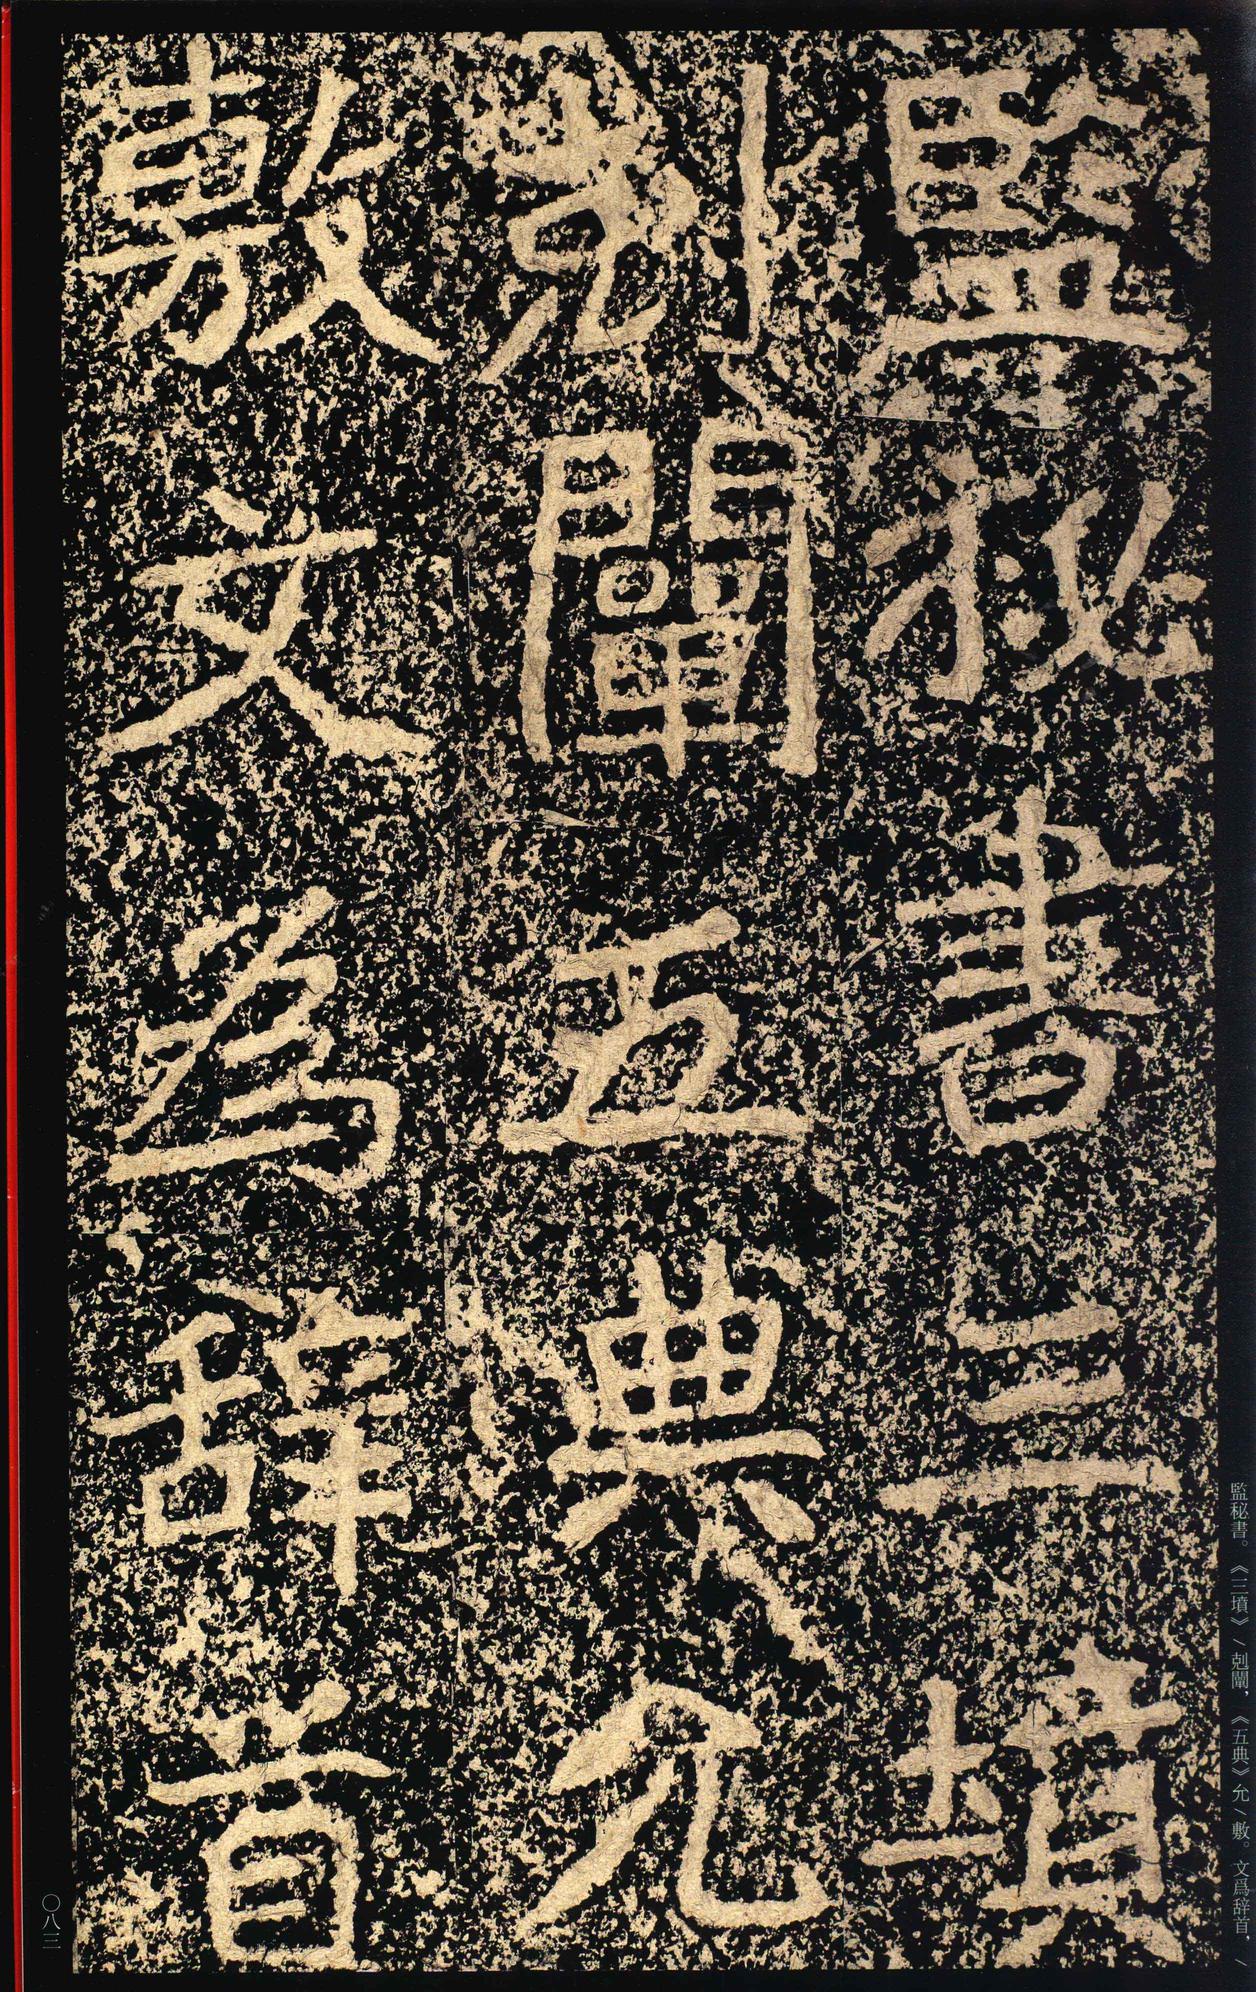 監秘書三墳
剋闡五典允
敷文為辞首
監秘書。《三墳》/剋闡,《五典》允/敷。文爲辞首,/
〇八三